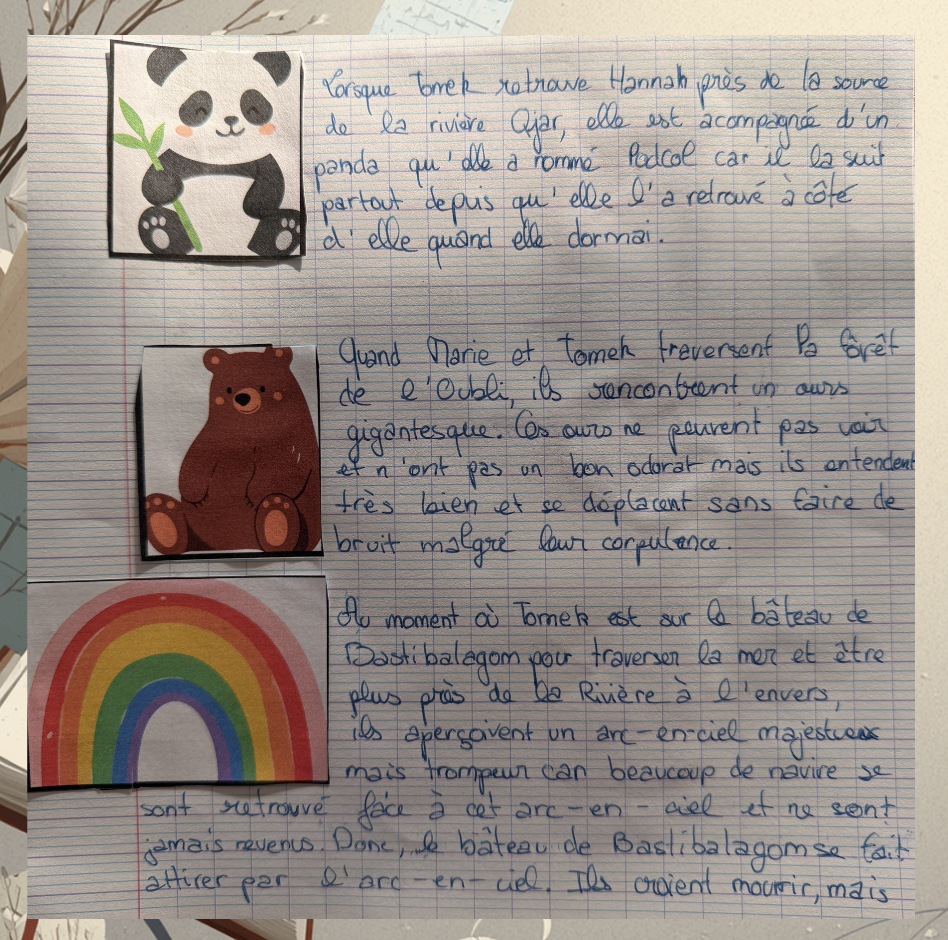 Lorsque Tomek retrouve Hannah près de la source
de la rivière Qjar, elle est acompagnée d'un
panda qu'elle a nommé Podcol car il la suit
partout depuis qu'elle l'a retrouvé à côté
d'elle quand elle dormai.
Quand Marie et Tomek traversent la fôrêt
de l'Oubli, ils rencontrent un ours
gigantesque. Ces ours ne peuvent pas voir
et n'ont pas un bon odorat mais ils entendent
très bien et se déplacent sans faire de
bruit malgré leur corpulence.
Au moment où Tomek est sur le bâteau de
Bastibalagom pour traverser la mer et être
plus près de la Rivière à l'envers,
ils aperçoivent un arc-en-ciel majestueux
mais trompeur car beaucoup de navire se
sont retrouvé face à cet arc-en-ciel et ne sont
jamais revenus. Donc, le bâteau de Bastibalagom se fait
attirer par l'arc-en-ciel. Ils croient mourir, mais